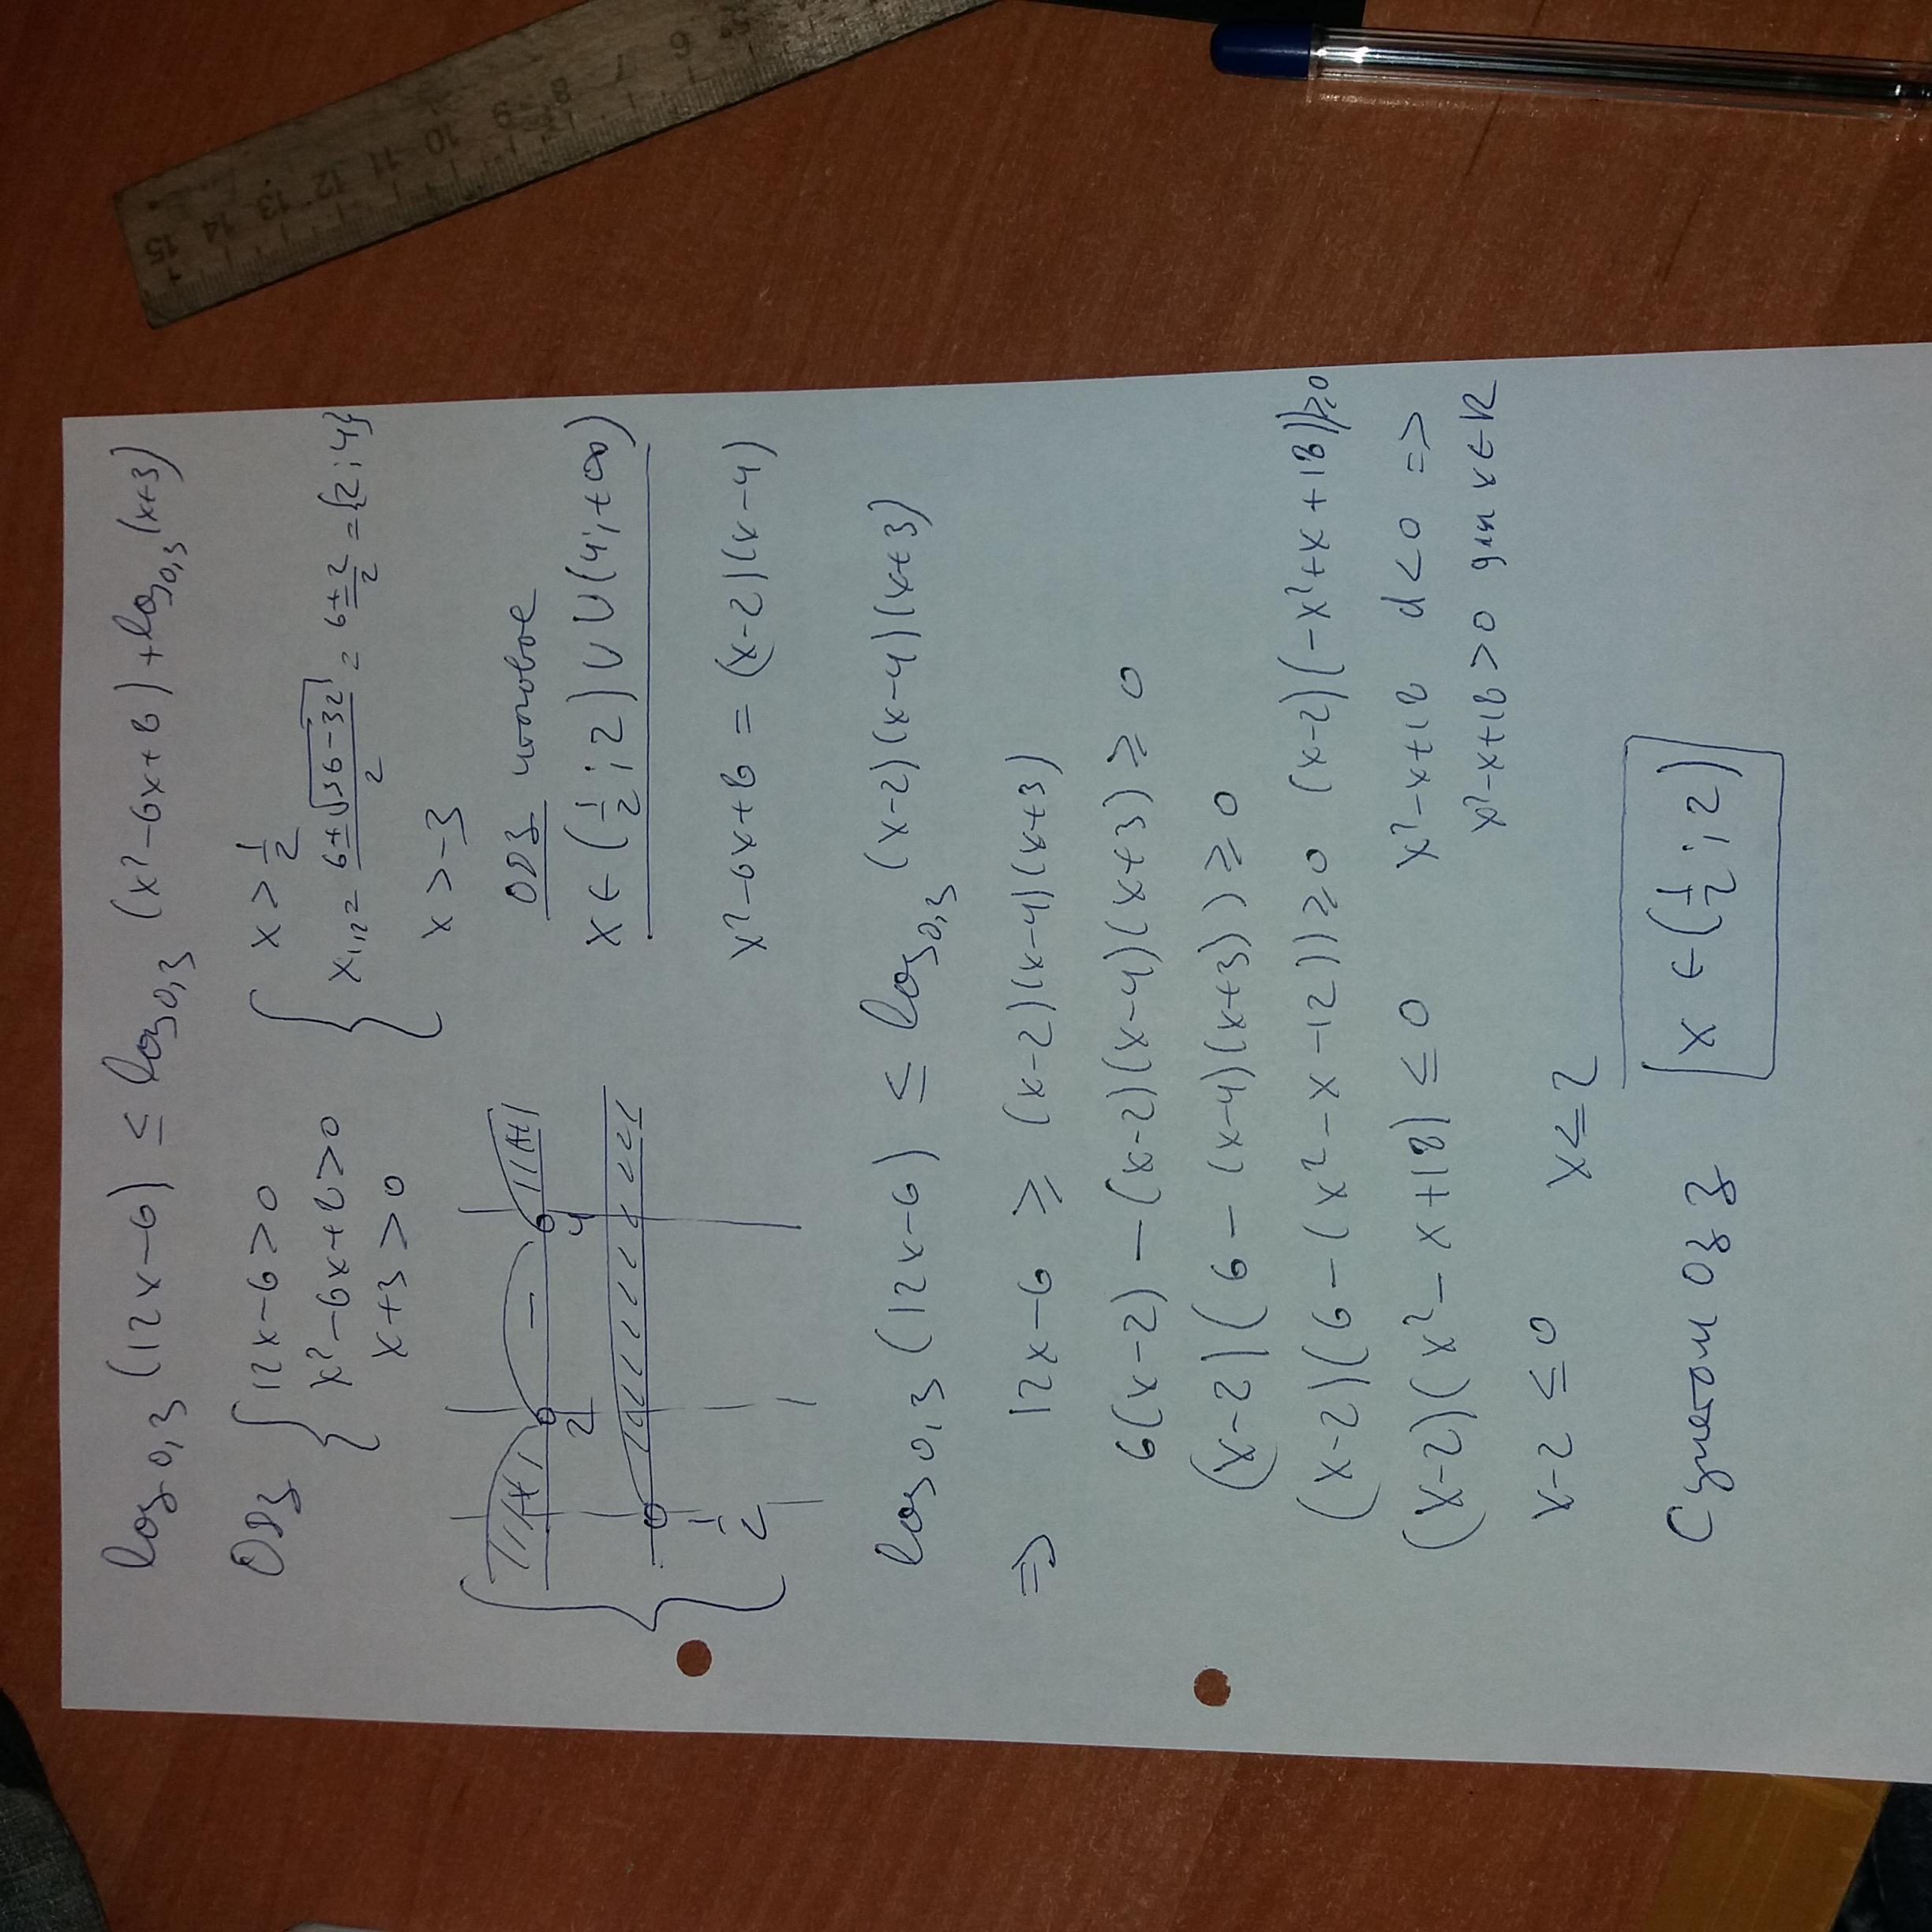 log0,3 (12x-6) ≤ log0,3 (x²-6x+8) + log0,3 (x+3)
ОДЗ { 12x-6>0 { x > 1/2
x²-6x+8>0 x1,2 = (6±√(36-32))/2 = (6±2)/2 = {2;4}
x+3>0 x>-3
ОДЗ итовое
+ - + x ∈ (1/2; 2) ∪ ∪ (4; +∞)
2 4
1/2
x²-6x+8 = (x-2)(x-4)
log0,3 (12x-6) ≤ log0,3 (x-2)(x-4)(x+3)
=> 12x-6 ≥ (x-2)(x-4)(x+3)
6(x-2) - (x-2)(x-4)(x+3) ≥ 0
(x-2)(6-(x-4)(x+3)) ≥ 0
(x-2)(6-(x²-x-12)) ≥ 0 (x-2)(-x²+x+18) ≥ 0
(x-2)(x²-x+18) ≤ 0 x²-x+18 d<0 =>
x²-x+18>0 для x∈R
x-2 ≤ 0 x ≤ 2
С учетом ОДЗ x ∈ (1/2; 2)
15 14 13 12 11 10 9 8 7 6 5